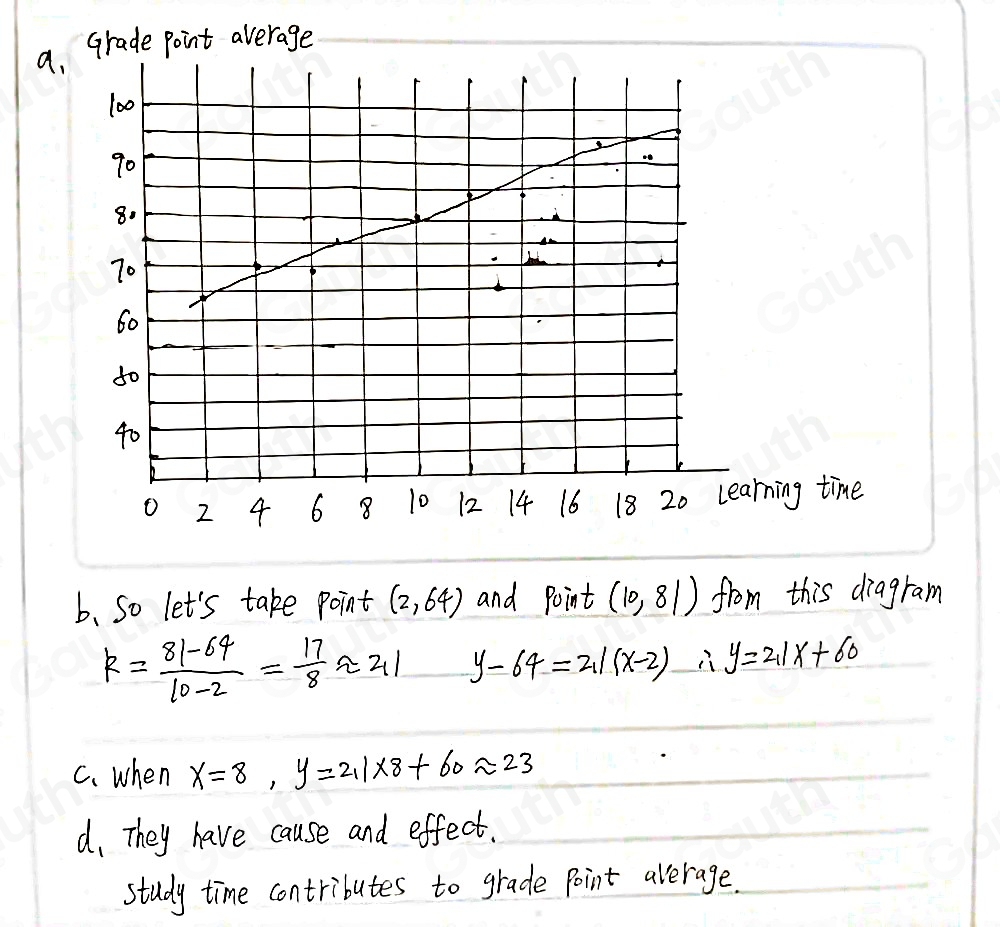 a, Grade point average
100
90
80
70
60
50
40
0 2 4 6 8 10 12 14 16 18 20 Learning time
b, So let's take point (2,64) and point (10,81) from this diagram
k = \frac{81-64}{10-2} = \frac{17}{8} ≈ 2.1 y-64=2.1(x-2) ∴ y=2.1x+60
c, when x=8, y=2.1×8+60≈23
d, They have cause and effect.
study time contributes to grade point average.